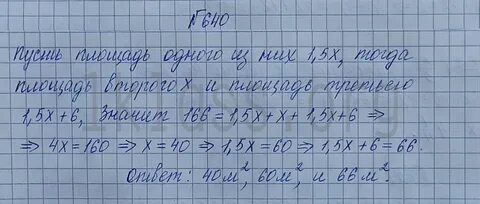 №640
Пусть площадь одного из них 1,5x, тогда
площадь второго x и площадь третьего
1,5x+6, Значит 166=1,5x+x+1,5x+6 ⇒
⇒ 4x=160 ⇒ x=40 ⇒ 1,5x=60 ⇒ 1,5x+6=66.
Ответ: 40м², 60м², и 66м².